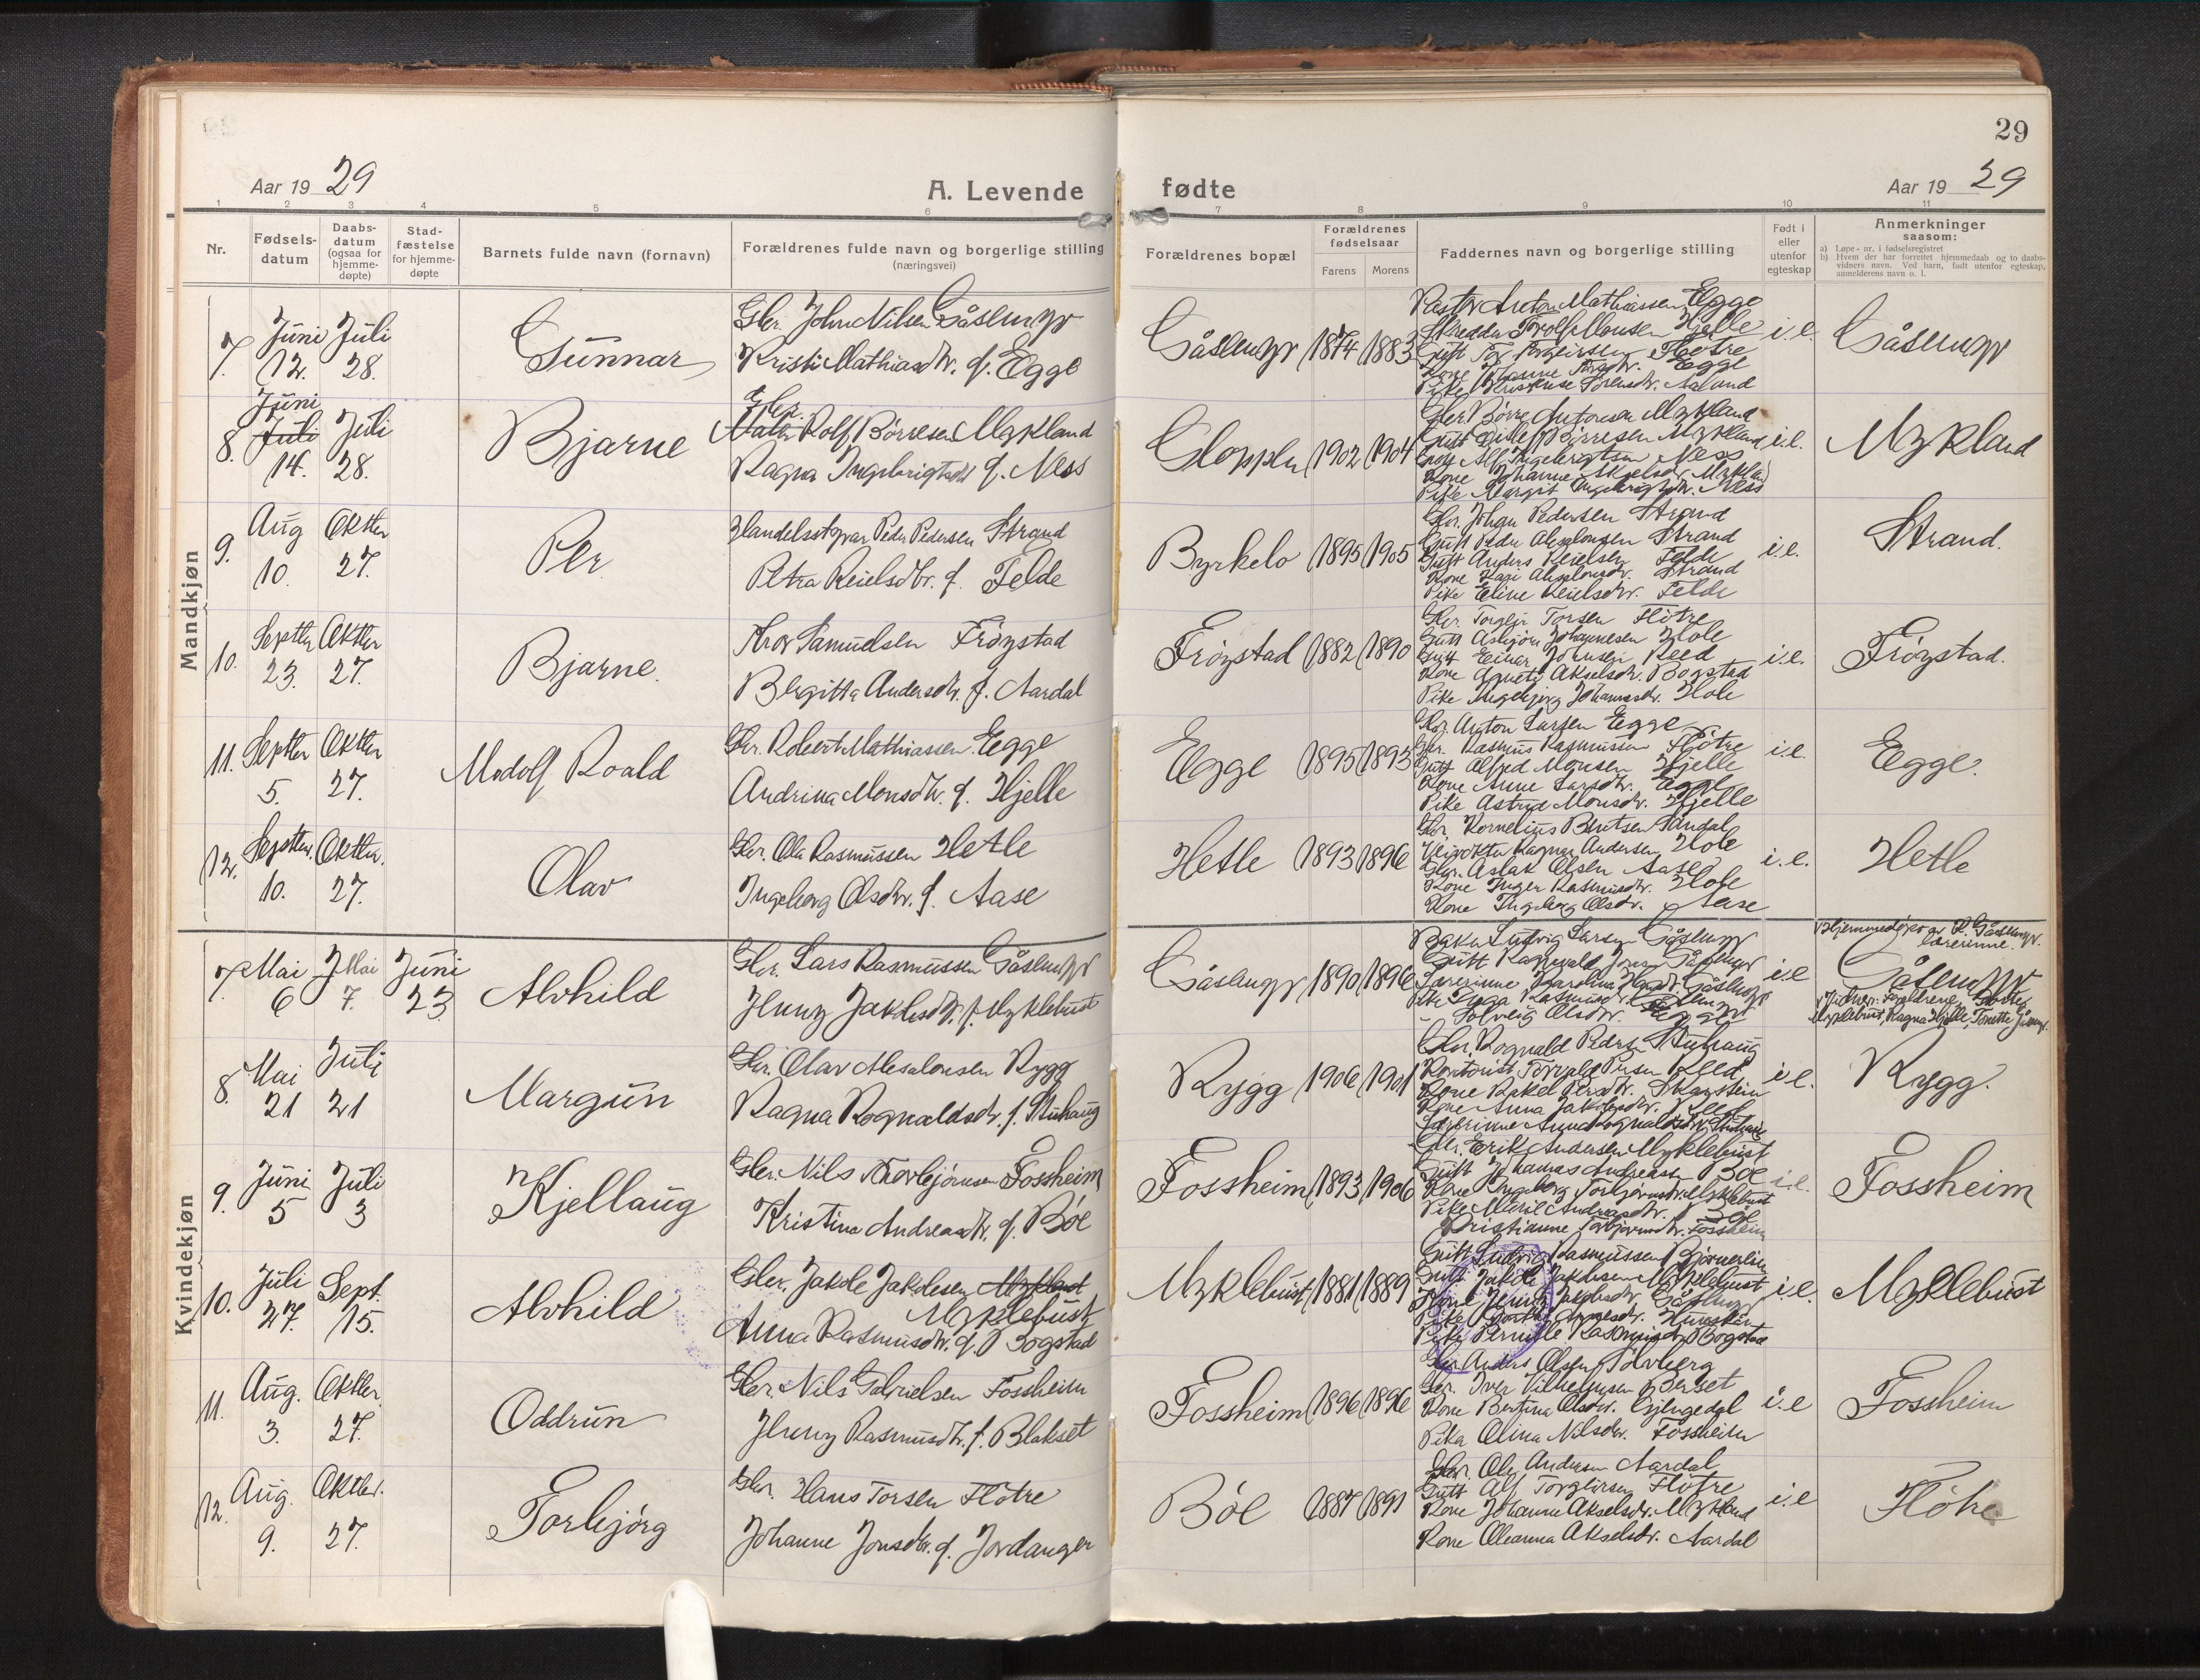 29
Aar 19 29
A. Levende fødte
Aar 19 29
1 2 3 4 5 6 7 8 9 10 11
Nr.
Fødsels-
datum
Daabs-
datum
(ogsaa for
hjemme-
døpte)
Stad-
fæstelse
for hjemme-
døpte
Barnets fulde navn (fornavn)
Forældrenes fulde navn og borgerlige stilling
(næringsvei)
Forældrenes bopæl
Forældrenes
fødselsaar
Farens Morens
Faddernes navn og borgerlige stilling
Født i
eller
utenfor
egteskap
Anmerkninger
saasom:
a) Løpe-nr. i fødselsregistret
b) Hvem der har forrettet hjemmedaab og to daabs-
vidners navn. Ved barn, født utenfor egteskap,
anmelderens navn o. l.
Mandkjøn
7. Juni 12. Juli 28. Gunnar
Gbr. John Nilsen Gåslungr
Kristi Mathiasdtr. f. Egge
Gåslungr 1874 1883
Anton Mathiassen Egge
Monsen Hjelle
Gutt Tor Torgeirsen Flötre
Kone Johanne Egge
Pike Sörensdtr. Aaland
i.e. Gåslungr
8. Juni Juli 14. Juli 28. Bjarne
Gbr. Rolf Börresen Mykland
Ragna Ingebrigtsdtr f. Ness
Gloppen 1902 1904
Gbr. Börre Antonsen Mykland
Gutt Börresen Mykland
Alf Ingebrigtsen Ness
Kone Johanne Mykland
Pike Margit Ingebrigtsdtr. Ness
i.e. Mykland
9. Aug 10. Oktbr 27. Per
Peder Pedersen Strand
Petra Reielsdtr. f. Felde
Byrkelo 1895 1905
Gbr. Johan Pedersen Strand
Gutt Peder Absalonsen Strand
Gutt Anders Reielsen Felde
Kone Absalonsdtr. Strand
Pike Eline Reielsdtr. Felde
i.e. Strand.
10. Septbr 23. Oktbr 27. Bjarne.
Samuelsen Fröystad
Birgitta Andersdtr. f. Aardal
Fröystad 1882 1890
Gbr. Torgeir Torsen Flötre
Gutt Asbjörn Johannesen Hole
Gutt Einar Johnsen Reed
Kone Agnete Akselsdtr. Bogstad
Pike Ingebjörg Johannesdtr. Hole
i.e. Fröystad.
11. Septbr 5. Oktbr 27. Modolf Roald
Gbr. Robert Mathiassen Egge
Andrina Monsdtr. f. Hjelle
Egge 1895 1893
Gbr. Anton Larsen Egge
Gbr. Rasmus Rasmussen Flötre
Gutt Alfred Monsen Hjelle
Kone Anne Larsdtr. Egge
Pike Astrid Monsdtr. Hjelle
i.e. Egge.
12. Septbr. 10. Oktbr. 27. Olav
Gbr. Ola Rasmussen Hetle
Ingeborg Olsdtr. f. Aase
Hetle 1893 1896
Gbr. Kornelius Berntsen Sandal
Veivokter Ragnar Andersen Hole
Gbr. Aslak Olsen Aase
Kone Inger Rasmusdtr. Hole
Kone Ingeborg Olsdtr. Aase
i.e. Hetle
Kvindekjøn
7. Mai 6 Mai 7. Juni 23 Alvhild
Gbr. Lars Rasmussen Gåslungr
Jenny Jakobsdtr. f. Myklebust
Gåslungr 1890 1896
Baker Ludvig Larsen Gåslungr
Gutt Ragnvald Gåslungr
Lærerinne Karolina Gåslungr
Pike Rasmusdtr.
Solveig Olsdtr. Egge
i.e
Hjemmedøpt av K. Gåslungr.
lærerinne.
Gåslungr
Foreldrene,
Myklebust, Ragna Hjelle,
8. Mai 21 Juli 21 Margun
Gbr. Olav Absalonsen Rygg
Ragna Rognaldsdtr. f. Stuhaug
Rygg 1906 1901
Gbr. Rognald Pedersen Stuhaug
Reed
Kone Rakel
Kone Anna Jakobsdtr. Reed
Lærerinne Anna Rognaldsdtr. Stuhaug
i.e. Rygg.
9. Juni 5 Juli 3 Kjellaug
Gbr. Nils Thorbjörnsen Fossheim
Kristina Andreasdtr. f. Böe
Fossheim 1893 1906
Gbr. Erik Andersen Myklebust
Gutt Johannes Andreassen Böe
Kone Ingeborg Torbjörnsdtr. Myklebust
Pike Andreasdtr. Böe
Kristianne Torbjörnsdtr. Fossheim
i.e. Fossheim
10. Juli 27. Sept. 15. Alvhild
Gbr. Jakob Jakobsen
Myklebust
Anna Rasmusdtr. f. Bogstad
Myklebust 1881 1889
Gutt Ludvig Rasmussen
Gutt Jakob Jakobsen Myklebust
Kone Jenny Jakobsdtr. Gåslungr
Pike
Pike Pernille Rasmusdtr. Bogstad
i.e. Myklebust
11. Aug. 3. Oktbr. 27. Oddrun
Gbr. Nils Gabrielsen Fossheim
Jenny Rasmusdtr. f. Blakset
Fossheim 1896 1896
Gbr Anders Olsen Sölvberg
Gbr. Iver Vilhelmsen Berset
Kone Bertina Olsdtr. Gjengedal
Pike Olina Nilsdtr. Fossheim
i.e Fossheim
12. Aug. 9. Oktbr. 27. Torbjörg
Gbr. Hans Torsen Flötre
Johanne Jonsdtr. f. Jordanger
Böe 1887 1891
Gbr. Ole Andersen Aardal
Gutt Alf Torgeirsen Flötre
Kone Johanne Akselsdtr. Mykland
Kone Oleanna Akselsdtr. Aardal
i.e Flötre